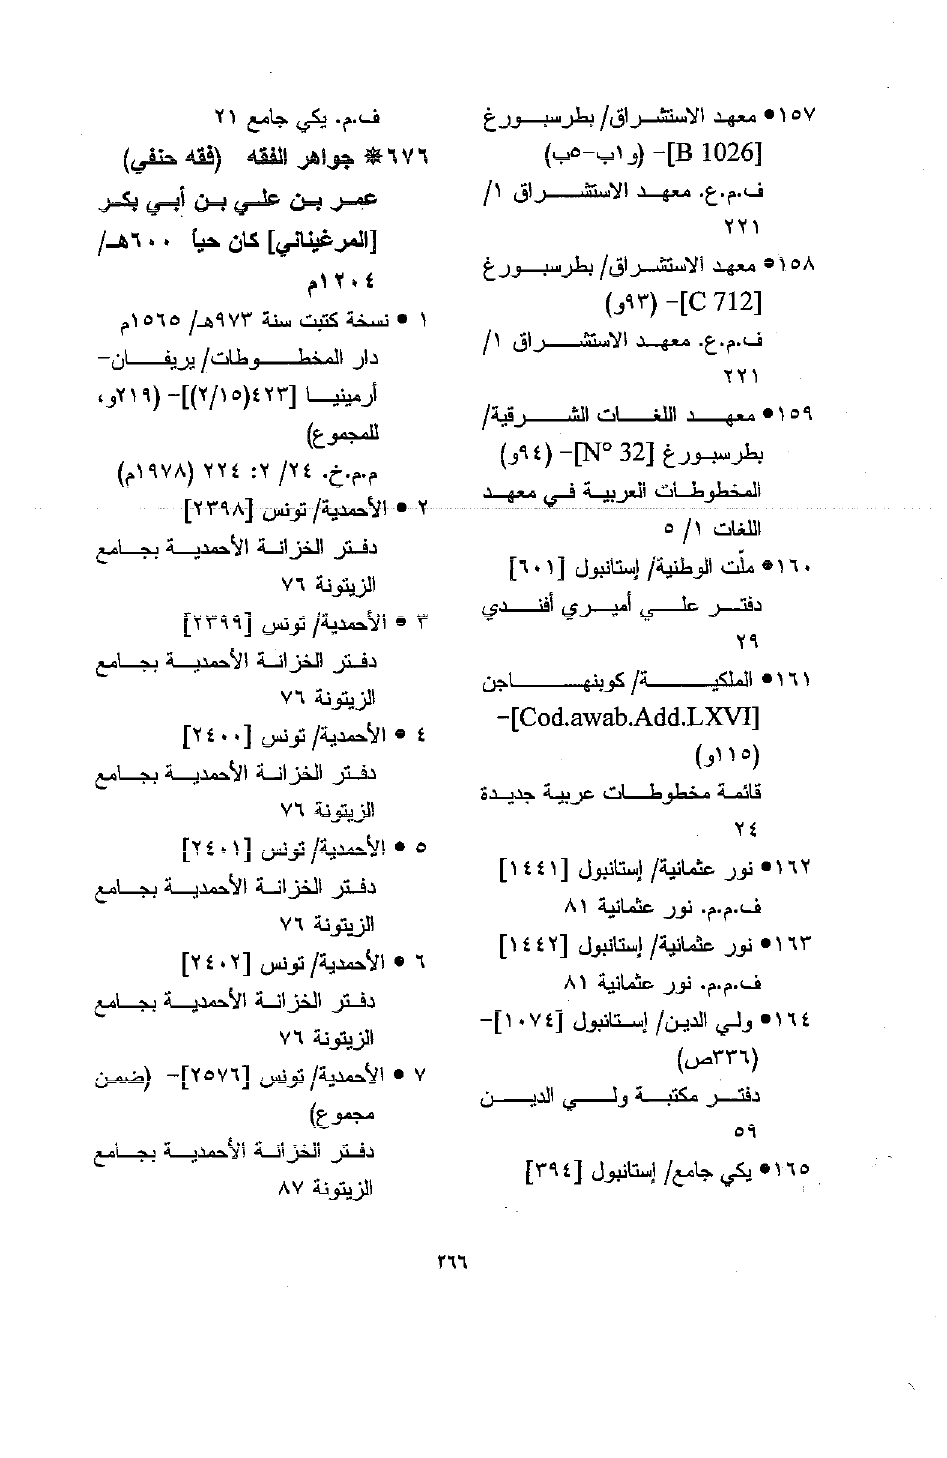 ١٥٧● معهد الاستشراق/ بطرسبورغ
[B 1026]– (و١ب–٥ب)
ف.م.ع. معهد الاستشراق ١/
٢٢١
١٥٨● معهد الاستشراق/ بطرسبورغ
[C 712]– (٩٣و)
ف.م.ع. معهد الاستشراق ١/
٢٢١
١٥٩● معهد اللغات الشرقية/
بطرسبورغ [N° 32]– (٩٤و)
المخطوطات العربية في معهد
اللغات ١/ ٥
١٦٠● ملّت الوطنية/ إستانبول [٦٠١]
دفتر علي أميري أفندي
٢٩
١٦١● الملكية/ كوبنهاجن
[Cod.awab.Add.LXVI]–
(١١٥و)
قائمة مخطوطات عربية جديدة
٢٤
١٦٢● نور عثمانية/ إستانبول [١٤٤١]
ف.م.م. نور عثمانية ٨١
١٦٣● نور عثمانية/ إستانبول [١٤٤٢]
ف.م.م. نور عثمانية ٨١
١٦٤● ولي الدين/ إستانبول [١٠٧٤]–
(٣٣٦ص)
دفتر مكتبة ولي الدين
٥٩
١٦٥● يكي جامع/ إستانبول [٣٩٤]
ف.م. يكي جامع ٢١
٦٧٦❊ جواهر الفقه (فقه حنفي)
عمر بن علي بن أبي بكر
[المرغيناني] كان حياً ٦٠٠هـ/
١٢٠٤م
١ ● نسخة كتبت سنة ٩٧٣هـ/ ١٥٦٥م
دار المخطوطات/ يريفان–
أرمينيا [٤٢٣(٢/١٥)]– (٢١٩و،
للمجموع)
م.م.خ. ٢٤/ ٢: ٢٢٤ (١٩٧٨م)
٢ ● الأحمدية/ تونس [٢٣٩٨]
دفتر الخزانة الأحمدية بجامع
الزيتونة ٧٦
٣ ● الأحمدية/ تونس [٢٣٩٩]
دفتر الخزانة الأحمدية بجامع
الزيتونة ٧٦
٤ ● الأحمدية/ تونس [٢٤٠٠]
دفتر الخزانة الأحمدية بجامع
الزيتونة ٧٦
٥ ● الأحمدية/ تونس [٢٤٠١]
دفتر الخزانة الأحمدية بجامع
الزيتونة ٧٦
٦ ● الأحمدية/ تونس [٢٤٠٢]
دفتر الخزانة الأحمدية بجامع
الزيتونة ٧٦
٧ ● الأحمدية/ تونس [٢٥٧٦]– (ضمن
مجموع)
دفتر الخزانة الأحمدية بجامع
الزيتونة ٨٧
٣٦٦